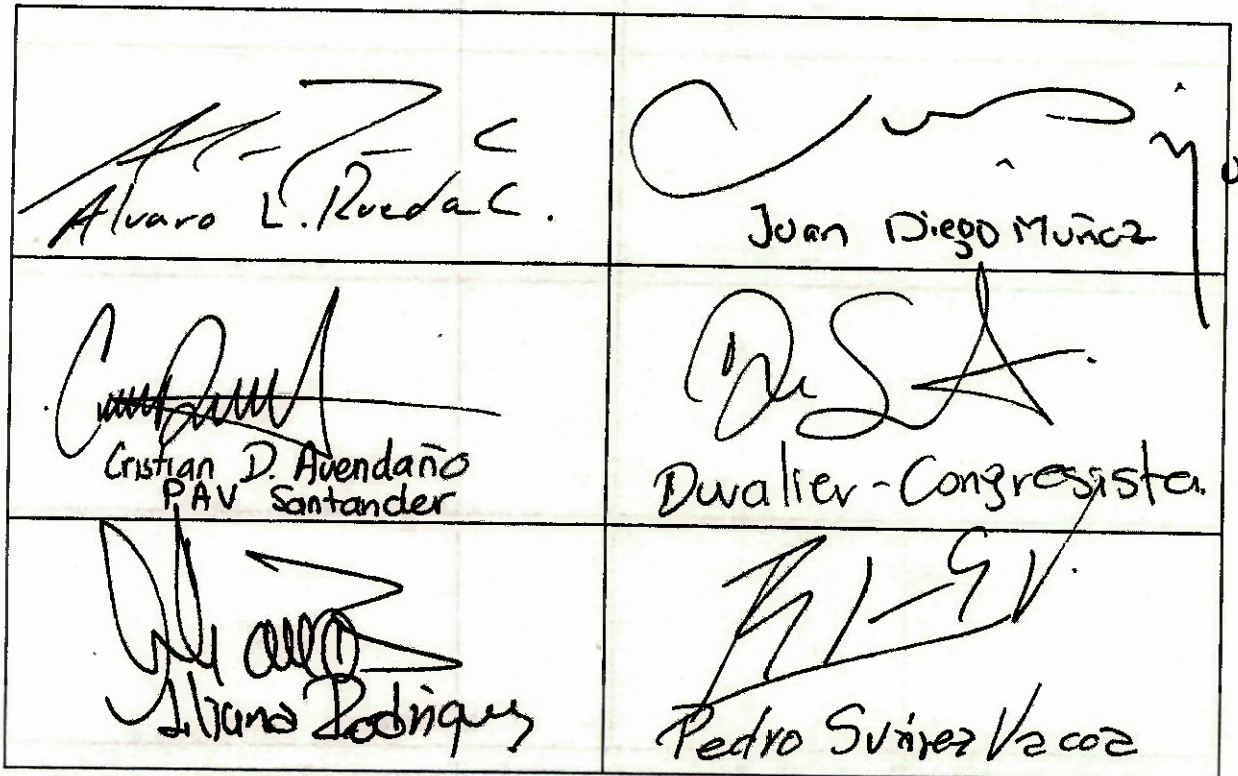 Alvaro L. Rueda C.
Juan Diego Muñoz
Cristian D. Avendaño
PAV Santander
Duvalier - Congresista.
Liliana Rodriguez
Pedro Suárez Vacca